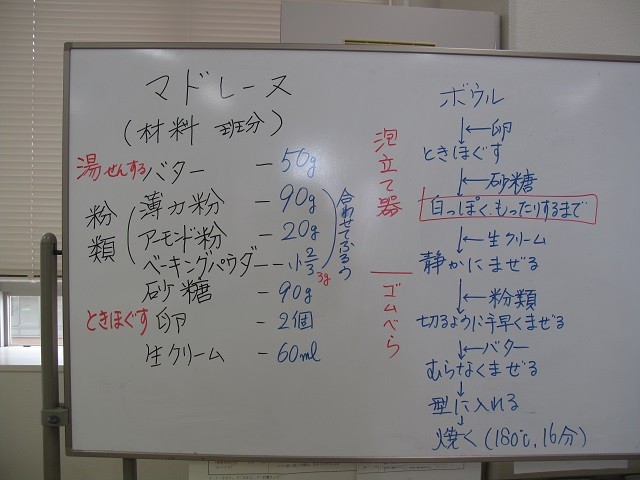 マドレーヌ
(材料 班分)
湯せんする バター − 50g
粉類
薄力粉 − 90g
アーモンド粉 − 20g
ベーキングパウダー − 小2/3
3g
合わせてふるう
砂糖 − 90g
ときほぐす 卵 − 2個
生クリーム − 60ml
泡立て器
ゴムべら
ボウル
↓←卵
ときほぐす
↓←砂糖
白っぽく、もったりするまで
↓←生クリーム
静かにまぜる
↓←粉類
切るように手早くまぜる
↓←バター
むらなくまぜる
↓
型に入れる
↓
焼く(180℃, 16分)